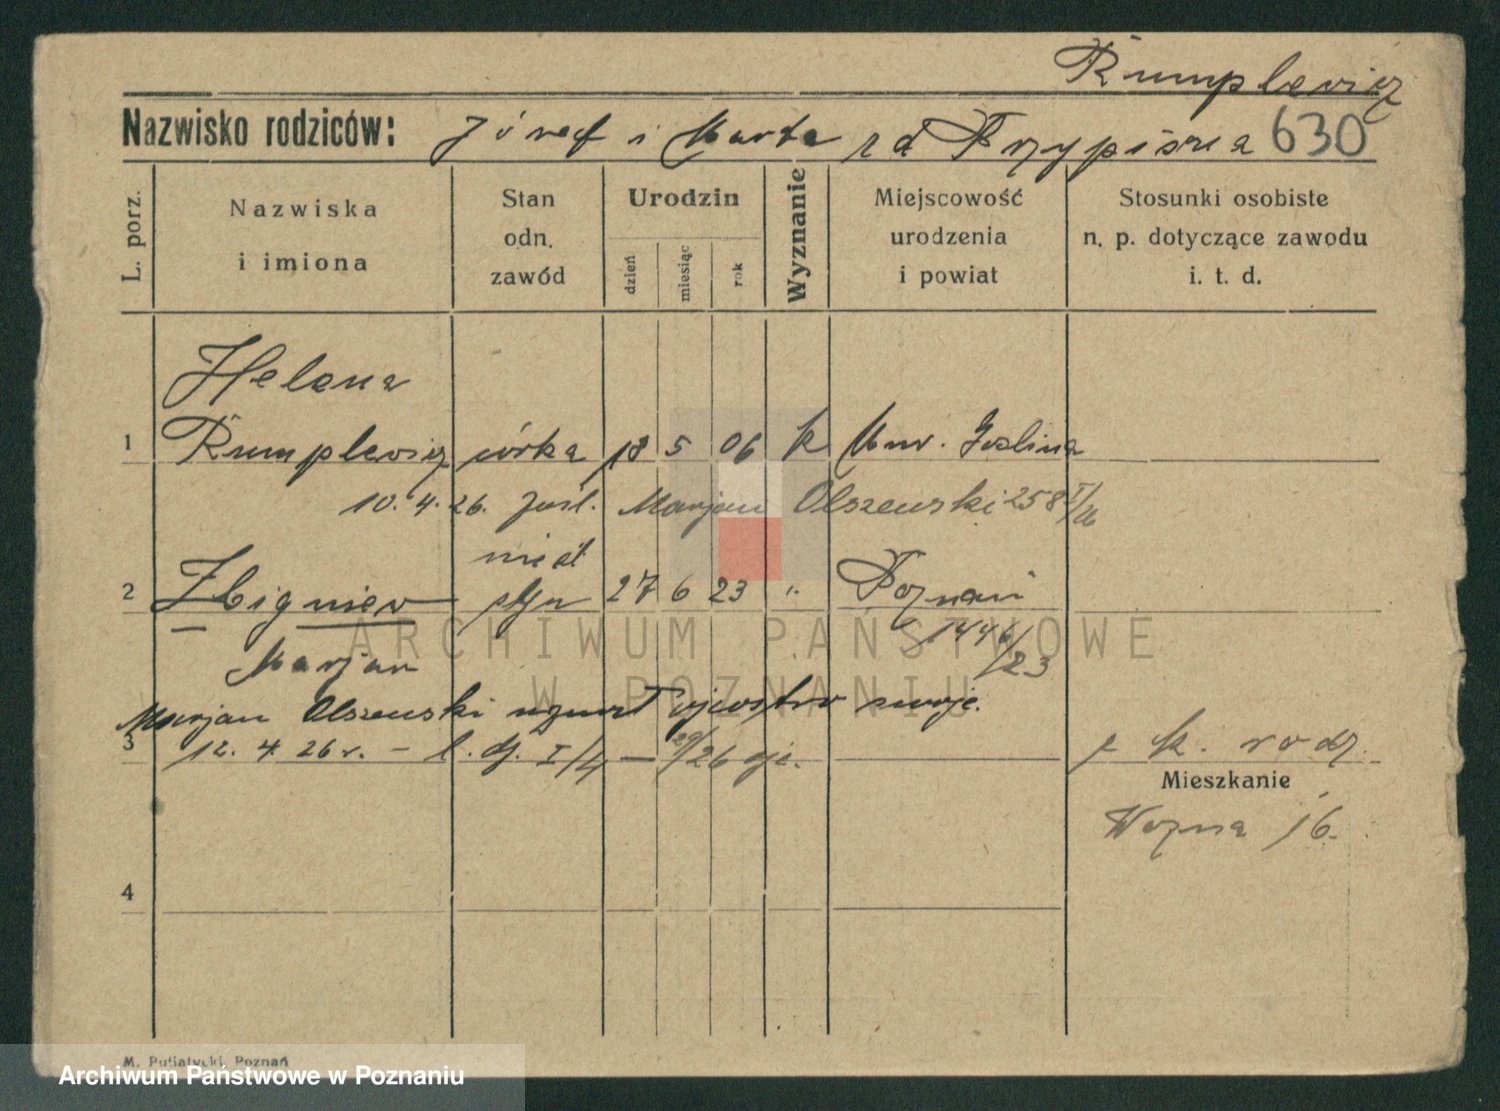 Rumplewicz
Nazwisko rodziców: Józef i Marta z d Przypiszna 630
L. porz.
Nazwiska i imiona
Stan odn. zawód
Urodzin
dzień
miesiąc
rok
Wyznanie
Miejscowość urodzenia i powiat
Stosunki osobiste n. p. dotyczące zawodu i. t. d.
Helena
1 Rumplewicz córka 18 5 06 k Mur. Goślina
10. 4. 26. Marjan Olszewski 258 I/26
2 Zbigniew syn 27 6 23 " Poznań
1446/23
Marjan
Marjan Olszewski uznał ojcostwo swoje.
3 12. 4. 26 r. – l. dz. I/4 – /26
z k. rodz.
Mieszkanie
Wozna 16.
4
M. Putiatycki, Poznań
ARCHIWUM PAŃSTWOWE
W POZNANIU
Archiwum Państwowe w Poznaniu